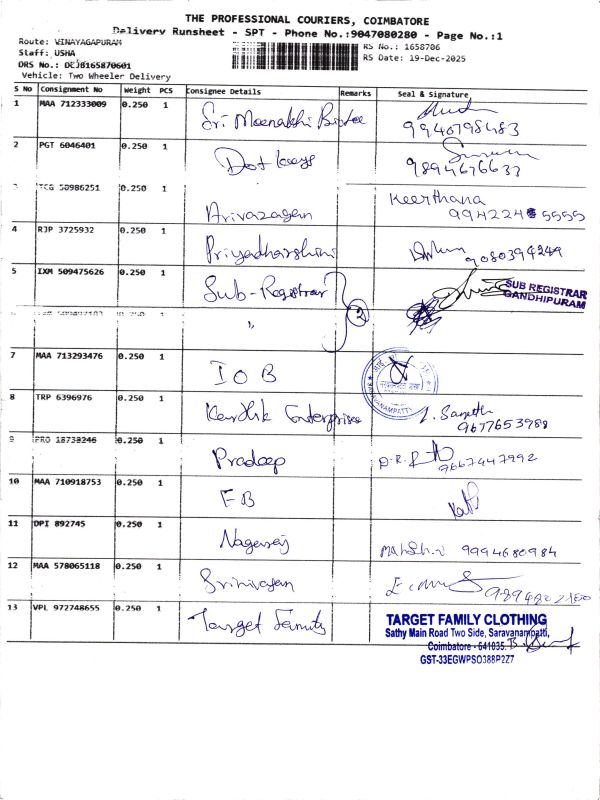 THE PROFESSIONAL COURIERS, COIMBATORE
Delivery Runsheet - SPT - Phone No.:9047080280 - Page No.:1
Route: VINAYAGAPURAM
Staff: USHA
DRS No.: DCJB165870601
Vehicle: Two Wheeler Delivery
RS No.: 1658706
RS Date: 19-Dec-2025
S No Consignment No Weight PCS Consignee Details Remarks Seal & Signature
1 MAA 712333009 0.250 1 Sri Meenakshi
9940798483
2 PGT 6046401 0.250 1 Dot Keys
9894676633
50986251 0.250 1 Arivazagan Keerthana
994224 5555
4 RJP 3725932 0.250 1 Priyadharshini
9080394249
5 IXM 509475626 0.250 1 Sub-Registrar 2
SUB REGISTRAR
GANDHIPURAM
"
7 MAA 713293476 0.250 1 IOB
8 TRP 6396976 0.250 1 Karthik Enterprises
9677653988
9 PRO 18738246 0.250 1 Pradeep D.R.
9667447992
10 MAA 710918753 0.250 1 FB
11 DPI 892745 0.250 1 Nagaraj
9994680984
12 MAA 578065118 0.250 1 Srinivasan
13 VPL 972748655 0.250 1 Target Family
TARGET FAMILY CLOTHING
Sathy Main Road Two Side, Saravanampatti,
Coimbatore - 641035.
GST-33EGWPS0388P2Z7